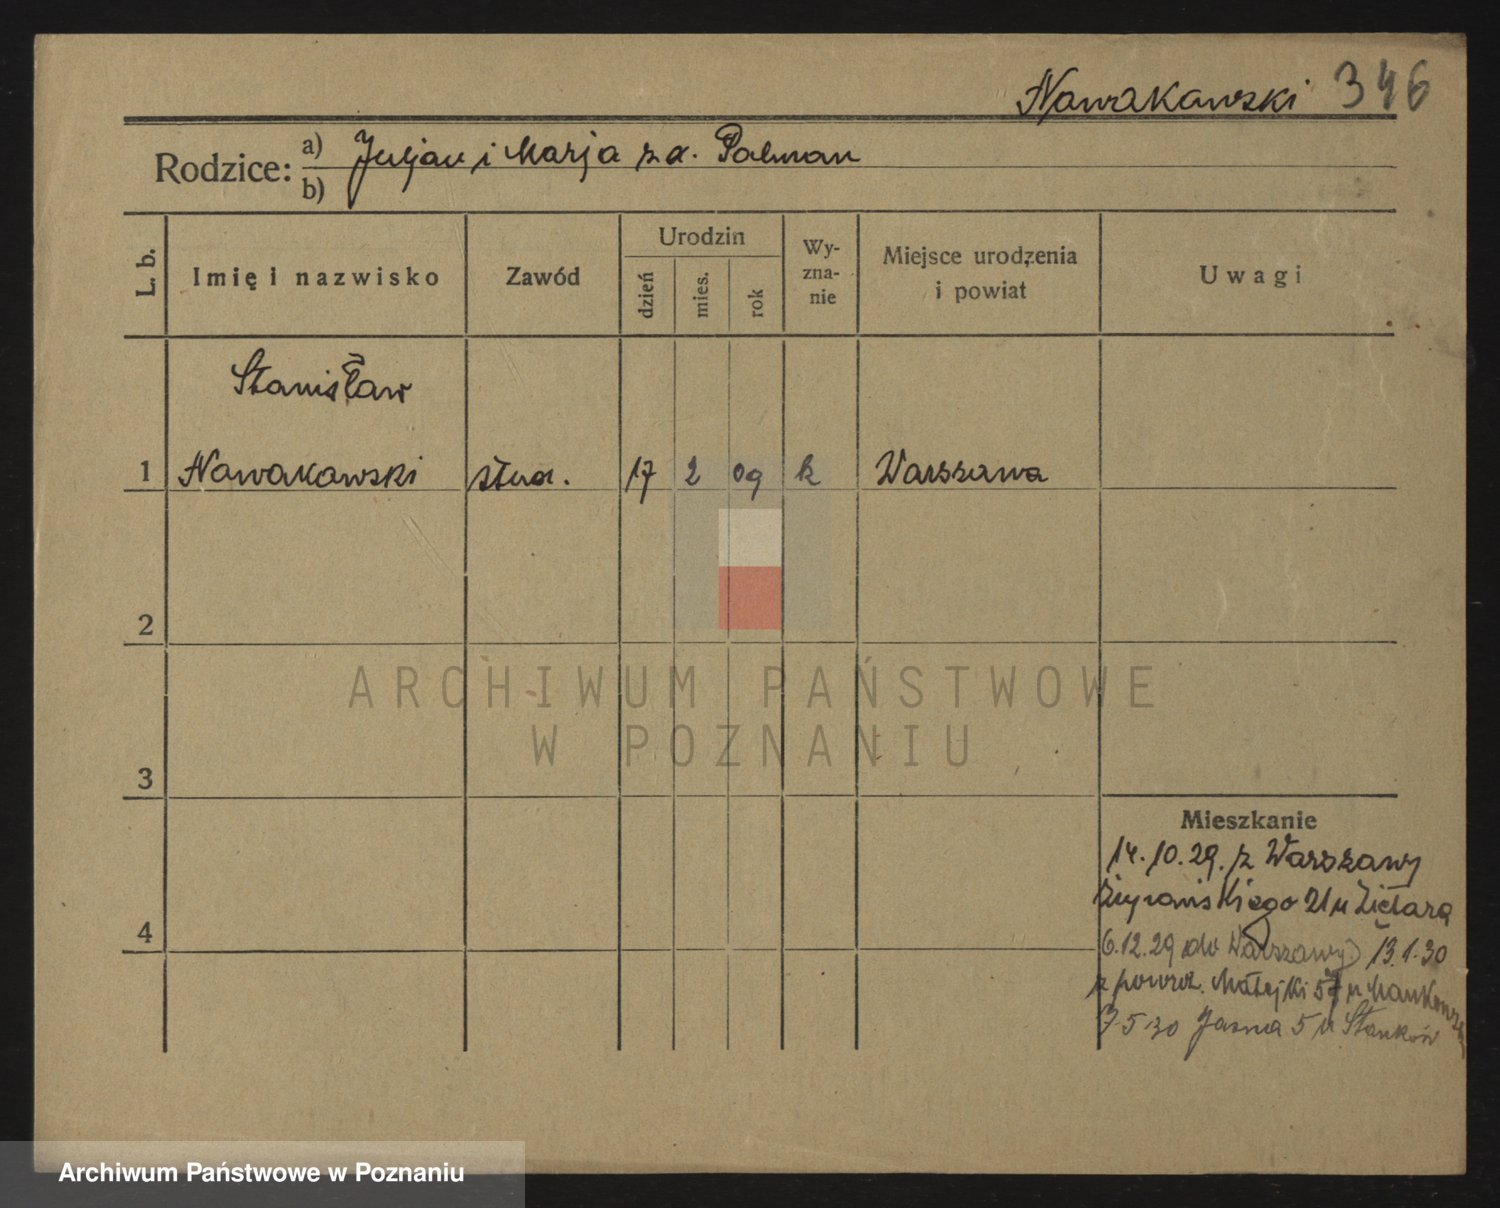 Nowakowski 346
Rodzice: a) Juljan i Marja z d. Palman
b)
L. b. Imię i nazwisko Zawód Urodzin dzień mies. rok Wyznanie Miejsce urodzenia i powiat Uwagi
Stanisław
1 Nowakowski stud. 17 2 09 k Warszawa
2
ARCHIWUM PAŃSTWOWE
W POZNANIU
3
Mieszkanie
14.10.29. z Warszawy
21 u Ziętara
4
6.12.29 do Warszawy 13.1.30
z powrot. Matejki 57 u
7.5.30 Jasna 5 u Stanków
Archiwum Państwowe w Poznaniu